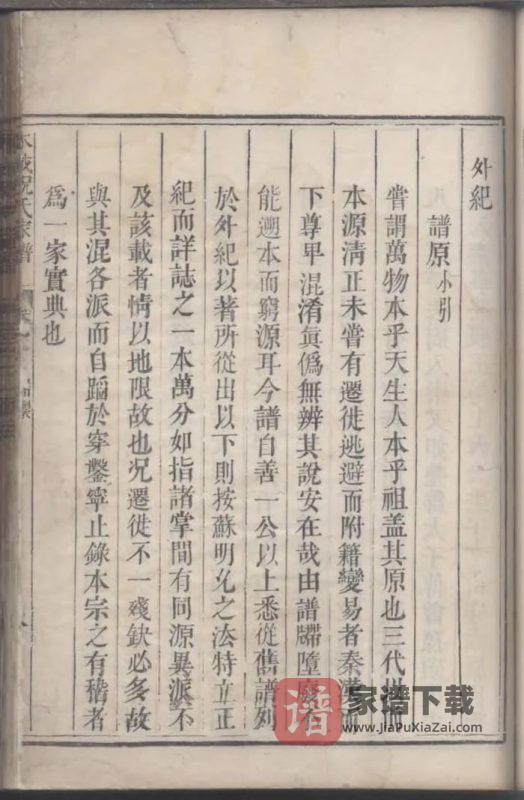 外紀
譜原小引
嘗謂萬物本乎天生人本乎祖盖其原也三代
本源清正未嘗有遷徙逃避而附籍變易者秦漢
下尊卑混淆眞僞無辨其說安在哉由譜牒墮廢不
能遡本而窮源耳今譜自善一公以上悉從舊譜列
於外紀以著所從出以下則按蘇明允之法特立正
紀而詳誌之一本萬分如指諸掌間有同源異派不
及該載者情以地限故也况遷徙不一殘缺必多故
與其混各派而自蹈於穿鑿寧止錄本宗之有稽者
爲一家實典也
祝氏家譜
譜
家谱下载
www.JiaPuXiaZai.com